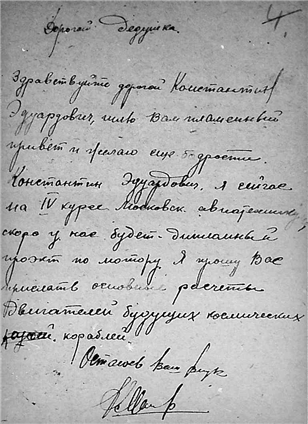 Дорогой Дедушка.
Здравствуйте дорогой Константин
Эдуардович, шлю Вам пламенный
привет и желаю еще бодрости.
Константин Эдуардович, я сейчас
на IV курсе Московск. авиатехникума,
скоро у нас будет дипломный
проэкт по мотору. Я прошу Вас
прислать основные расчеты
Двигателей будущих космических
кораблей
Остаюсь Ваш внук